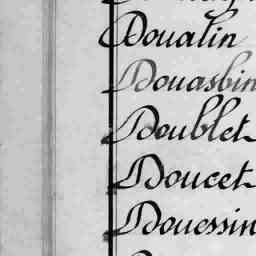 Doualin
Douasbin
Doublet
Doucet
Douessin